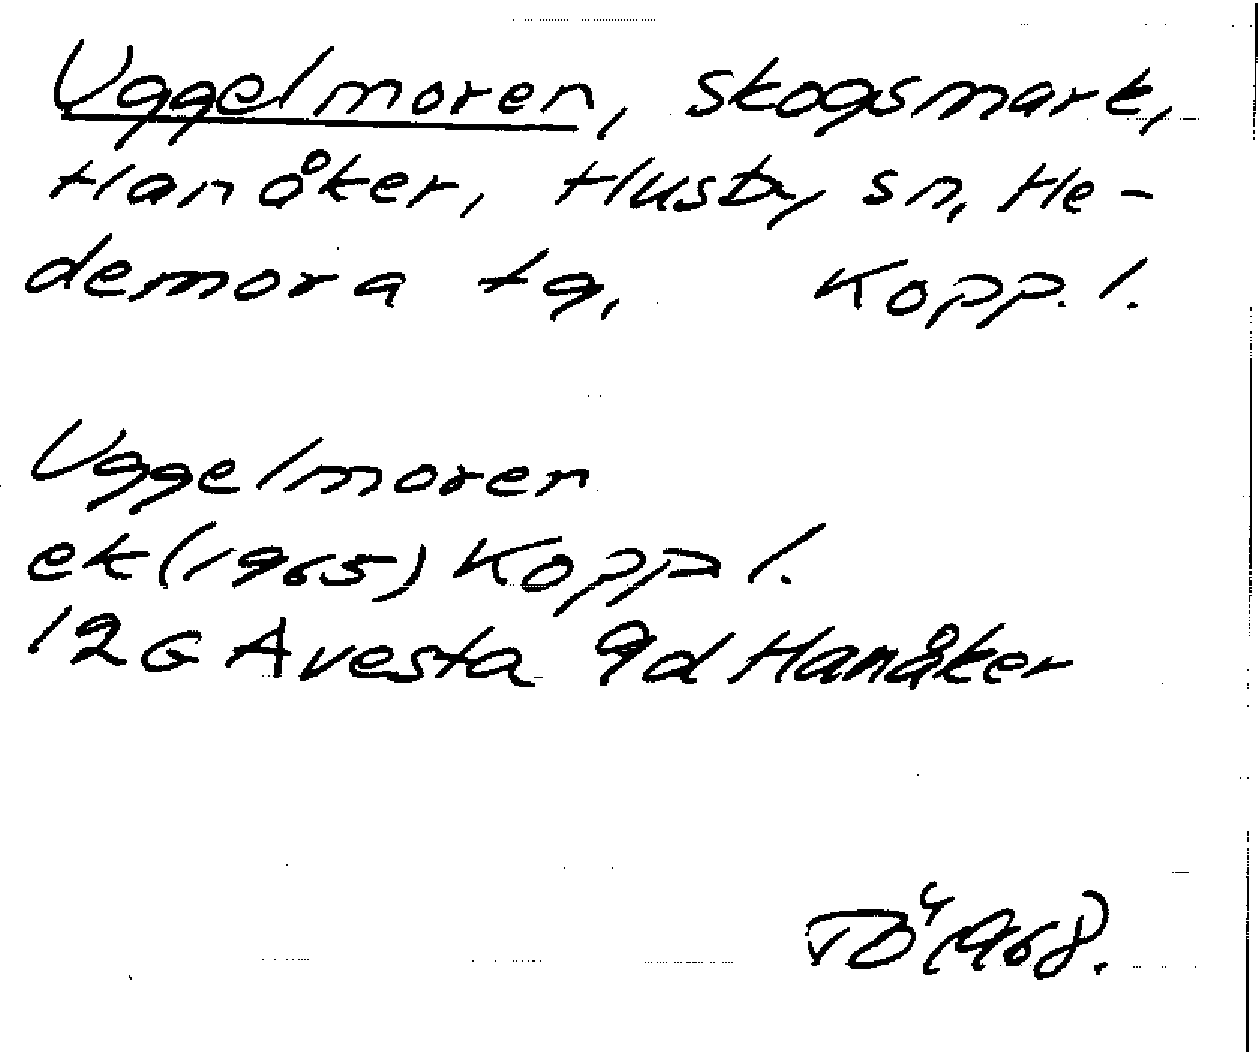 Uggelmoren, skogsmark,
Hanåker, Husby sn, He-
demora tg, Kopp. l.
Uggelmoren
ek (1965) Kopp l.
12G Avesta 9d Hanåker
TÖ (1968).